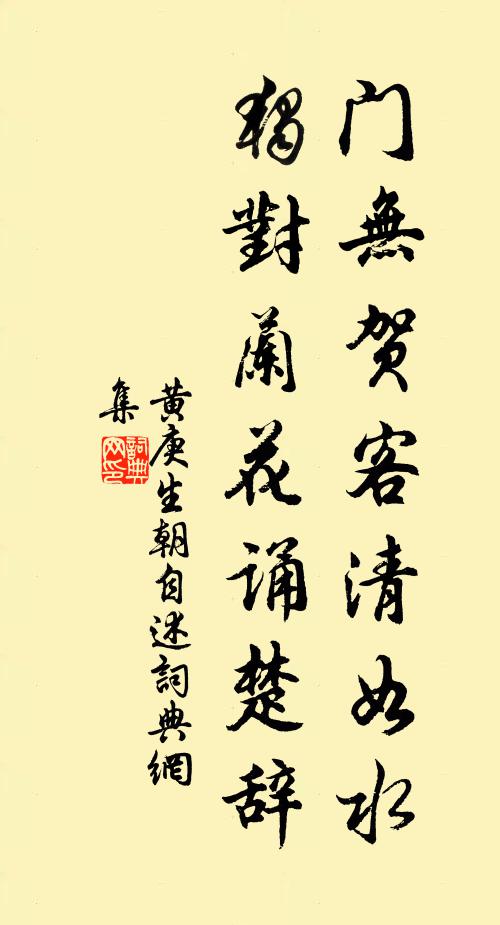 门無贺客清如水
独對蘭花诵楚辞
黄庚生朝自述詞典網
集
詞典
网印